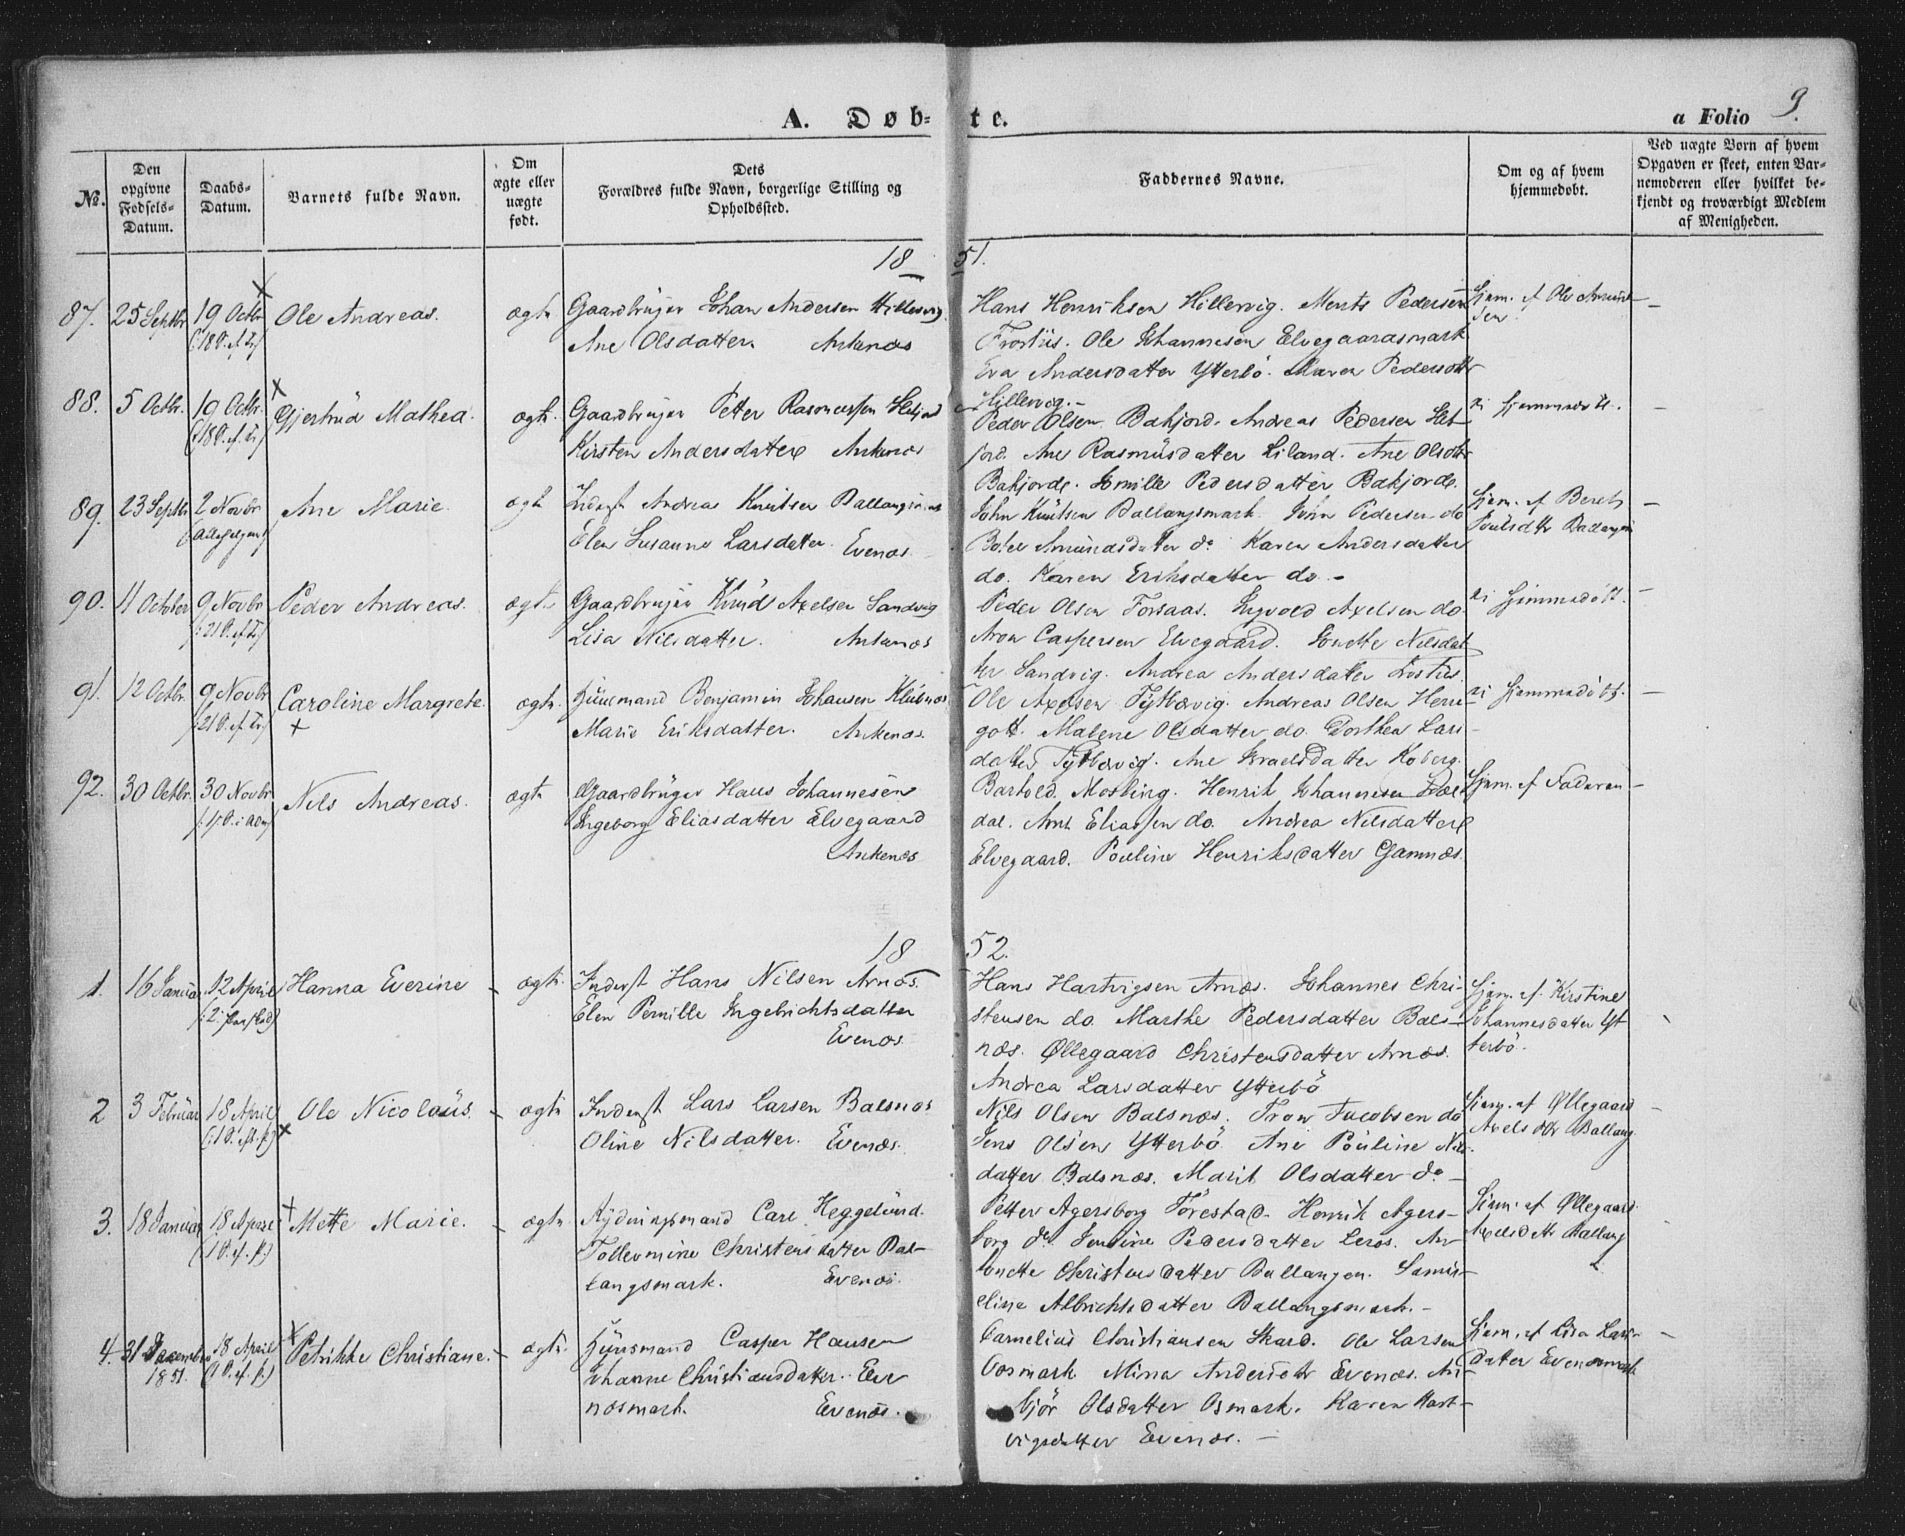 A. Døb= te.
a Folio 9.
No.
Den opgivne Fødsels-Datum.
Daabs-Datum.
Barnets fulde Navn.
Om ægte eller uægte født.
Dets Forældres fulde Navn, borgerlige Stilling og Opholdssted.
Faddernes Navne.
Om og af hvem hjemmedøbt.
Ved uægte Børn af hvem Opgaven er skeet, enten Barnemoderen eller hvilket bekjendt og troværdigt Medlem af Menigheden.
18 51.
87. 25 Septbr 19 Octbr Ole Andreas. ægte Gaardbruger Johan Andersen Hillesvig.
Ane Olsdatter. Ankenæs
Hans Henriksen Hillervig. Ments Pedersen
Ole Johannesen Elvegaardsmark
Eva Andersdatter Ytterbö. Maren Pedersdtr
Hillervig.
Hjem. af Ole Amund-
sen.
88. 5 Octbr. 19 Octbr. Gjertrüd Mathea. ægte. Gaardbruger Petter Rasmussen
Kirsten Andersdatter Ankenæs
Peder Olsen Bakjord. Andreas Pedersen Slet-
jord. Ane Rasmüsdatter Liland. Ane Olsdtr
Bakjorde. Pedersdatter Bakjorde.
ei hjemmedöbt.
89. 23 Septbr 2 Novbr Ane Marie. ægte Inderst Andreas Knutsen
Elen Susanne Larsdatter. Evenæs
John Knütsen Ballangsmark. John Pedersen do
Amundsdatter do Karen Andersdatter
do. Karen Eriksdatter do.
Hjem. af Beret
Poulsdtr Ballangen
90. 4 October 9 Novbr Peder Andreas. ægte Gaardbruger Knüd Axelsen Sandvig
(:21 P. ef. Tr:)
Lisa Nilsdatter. Ankenæs
Peder Olsen Forsaas. Ingvold Axelsen do.
Aron Caspersen Elvegaard. Nilsdat
ter Sandvig. Andrea Andersdatter
ei hjemmedöbt.
91. 12 Octbr. 9 Novbr Caroline Margrete. ægte. Huusmand Benjamin Johansen Klübnæs
(:21 P. ef. Tr:)
Marie Eriksdatter. Ankenæs.
Ole Axelsen Tyttbærvig. Andreas Olsen Herre-
gott. Malene Olsdatter do. Dorthea Lars-
datter Tyttbærvig. Ane Israelsdatter Koberg.
ei hjemmedöbt.
92. 30 Octbr. 30 Novbr Nils Andreas. ægte Gaardbrüger Hans Johannesen
Ingeborg Eliasdatter Elvegaard
Ankenæs
Barthold Mosling. Henrik Johannesen
dal. Arnt Eliassen do. Andrea Nilsdatter
Elvegaard. Pouline Henriksdatter Gamnæs.
Hjem. af Faderen
18 52.
1. 16 Januar 12 April Hanna Everine ægte. Inderst Hans Nilsen Arnæs.
Elen Pernille Ingebrichtsdatter
Evenæs
Hans Hartvigsen Arnæs. Johannes Chri-
stensen do. Marthe Pedersdatter Bals-
næs. Øllegaard Christensdatter Arnæs.
Andrea Larsdatter Ytterbö
Hjem. af. Kirstine
Johannesdatter Yt
terbö.
2 3 Februar 18 April Ole Nicolaüs. ægte Inderst Lars Larsen Balsnæs
Oline Nilsdatter. Evenæs.
Nils Olsen Balsnæs. Tron Jacobsen do
Jens Olsen Ytterbö. Ane Pouline Nils-
datter Balsnæs. Marit Olsdatter do
Hjem. af Øllegaard
Axelsdtr Ballang.
3. 18 Januar 18 April Mette Marie. ægte. Rydningsmand Carl Heggelund.
Tollevmine Christensdatter Bal-
langsmark. Evenæs.
Petter Agersborg Forestad. Henrik Agers-
borg do. Jensine Pedersdatter Leros. An-
tonette Christensdatter Ballangen. Samu-
eline Albrichtsdatter Ballangsmark.
Hjem. af Øllegaard
Axelsdatr Ballang
4. 31 December 18 April Petrikke Christiane. ægte. Huusmand Casper Hansen
1851.
Johanne Christiansdatter. Eve
næsmark. Evenæs.
Cornelius Christiansen Skard. Ole Larsen
Osmark. Mina Andersdtr Evenæs. An-
björ Olsdatter Osmark. Karen Hart-
vigsdatter Evenæs.
Hjem. af Lisa Lars-
datter Evenæsmark